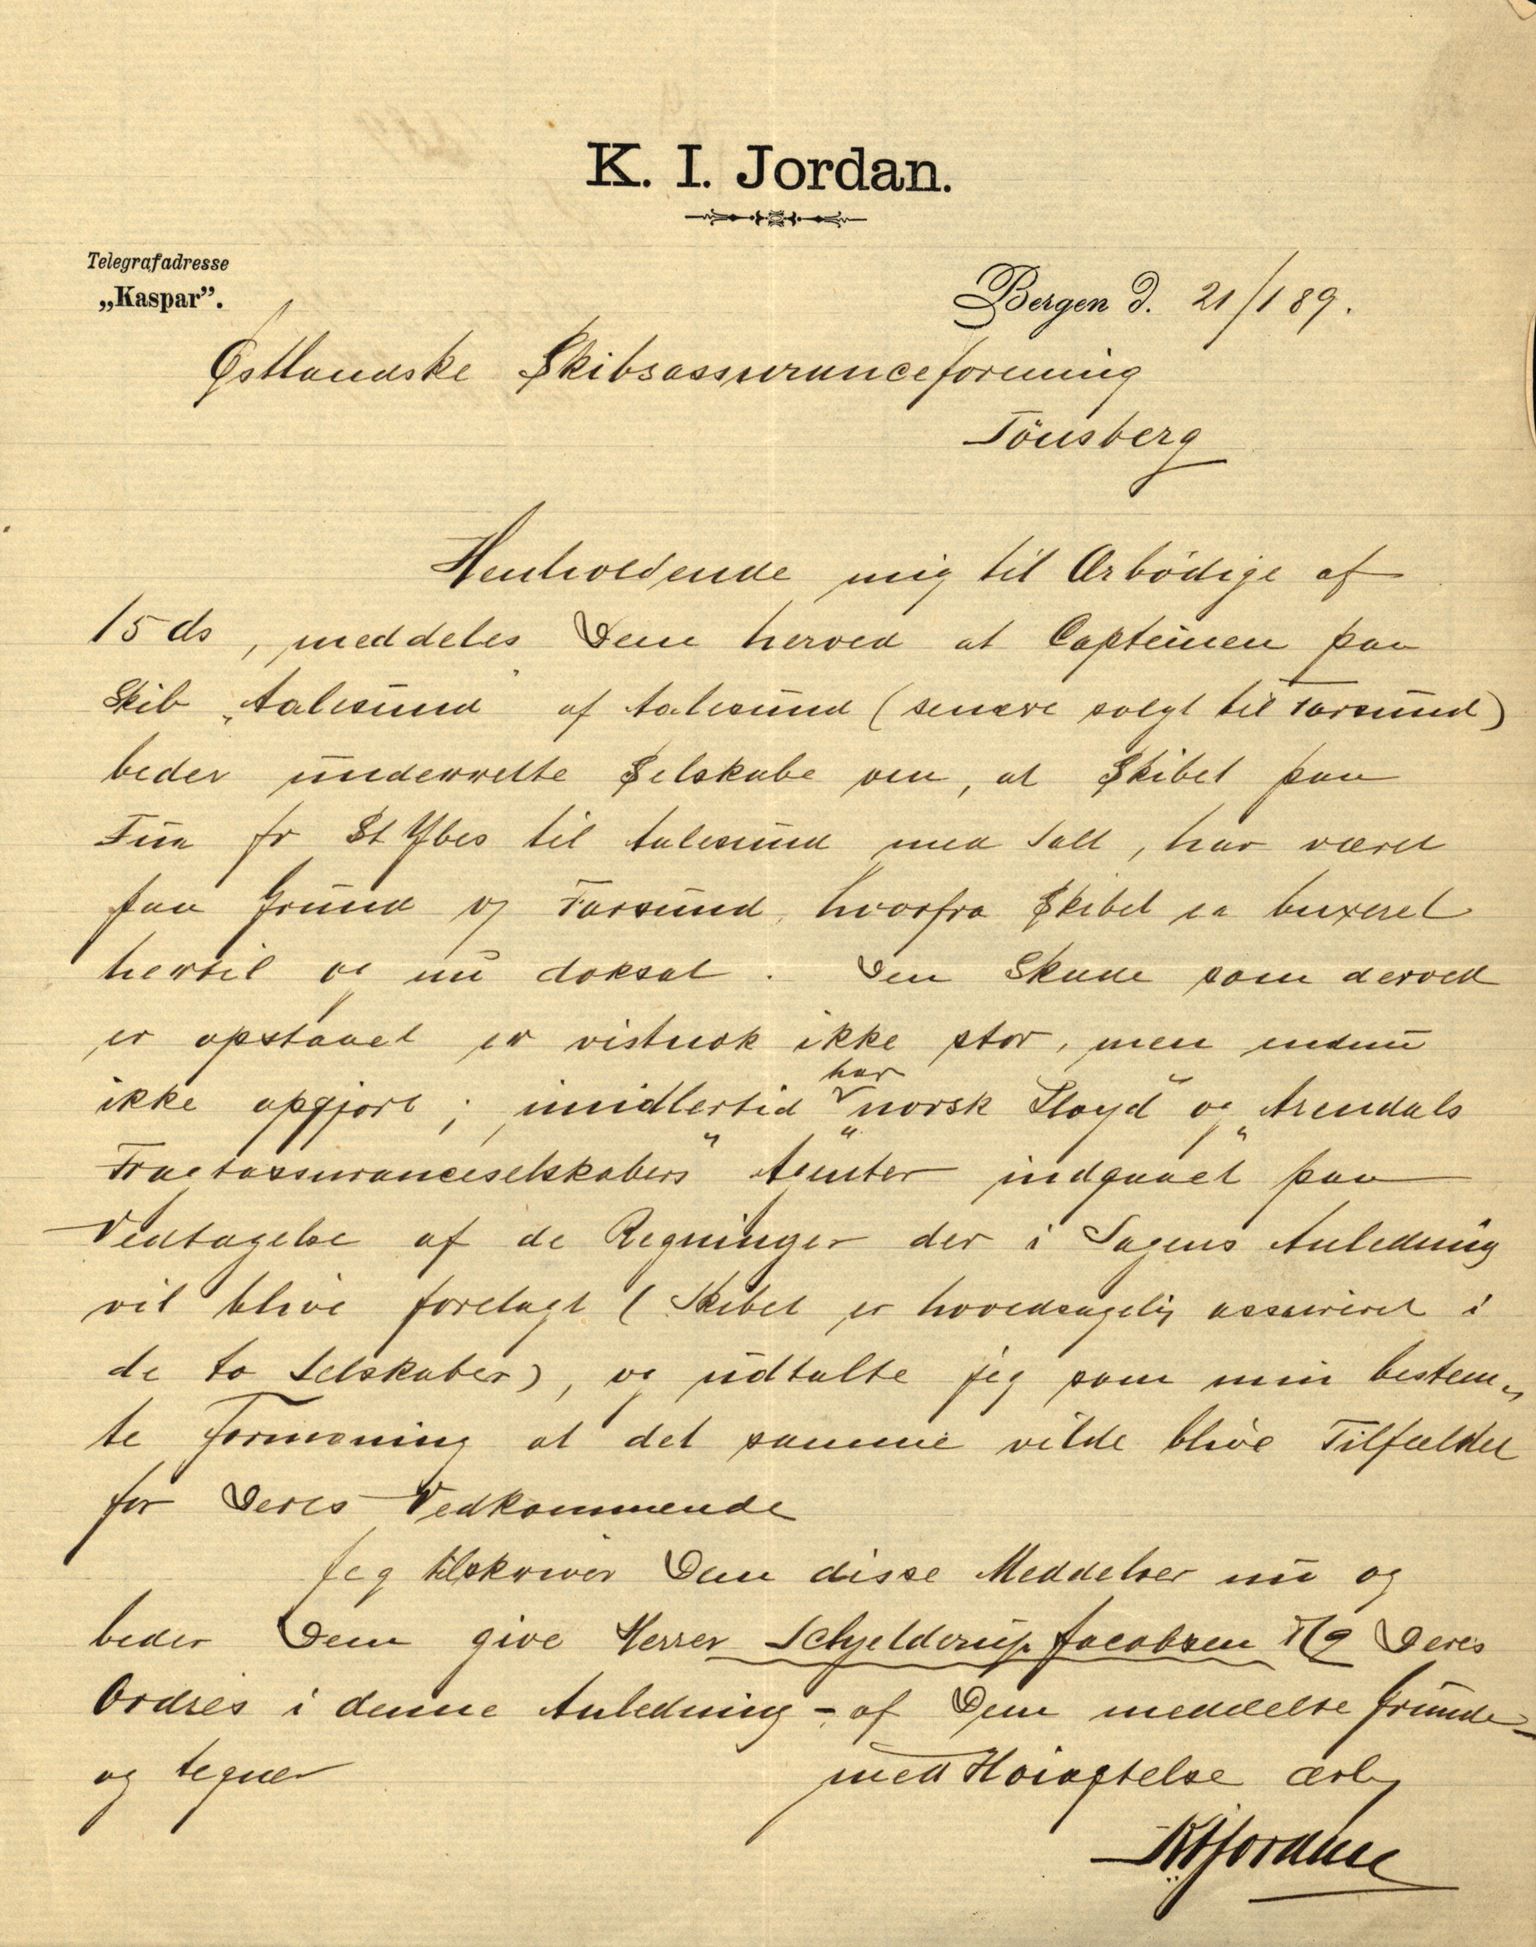 K. I. Jordan.
Telegrafadresse
„Kaspar”.
Bergen d. 21/1 89.
Østlandske Skibsassuranceforening
Tönsberg
Henholdende mig til Ærbödige af
15 ds, meddeles Dem herved at Capteinen paa
Skib „Aalesund” af Aalesund (senere solgt til Farsund)
beder underrette Selskabe om, at Skibet paa
Tur fr St Ybes til Aalesund med Salt, har været
paa Grund v Farsund, hvorfra Skibet er buxeret
hertil og nu doksat. Den Skade som derved
er opstaaet er vistnok ikke stor, men endnu
ikke opgjort; imidlertid har „norsk Lloyd” og „Arendals
Fragtassuranceselskabers” Agenter indgaaet paa
Vedtagelse af de Regninger der i Sagens Anledning
vil blive foretagt (Skibet er hovedsagelig assureret i
de to Selskaber), og udtalte jeg som min bestem-
te Formening at det samme vilde blive Tilfældet
for Deres Vedkommende
Jeg tilskriver Dem disse Meddelser nu og
beder Dem give Herrer Schjelderup Jacobsen & Co Deres
Ordres i denne Anledning - af Dem meddelte Grunde -
og tegner med Høiagtelse ærb
K I Jordan